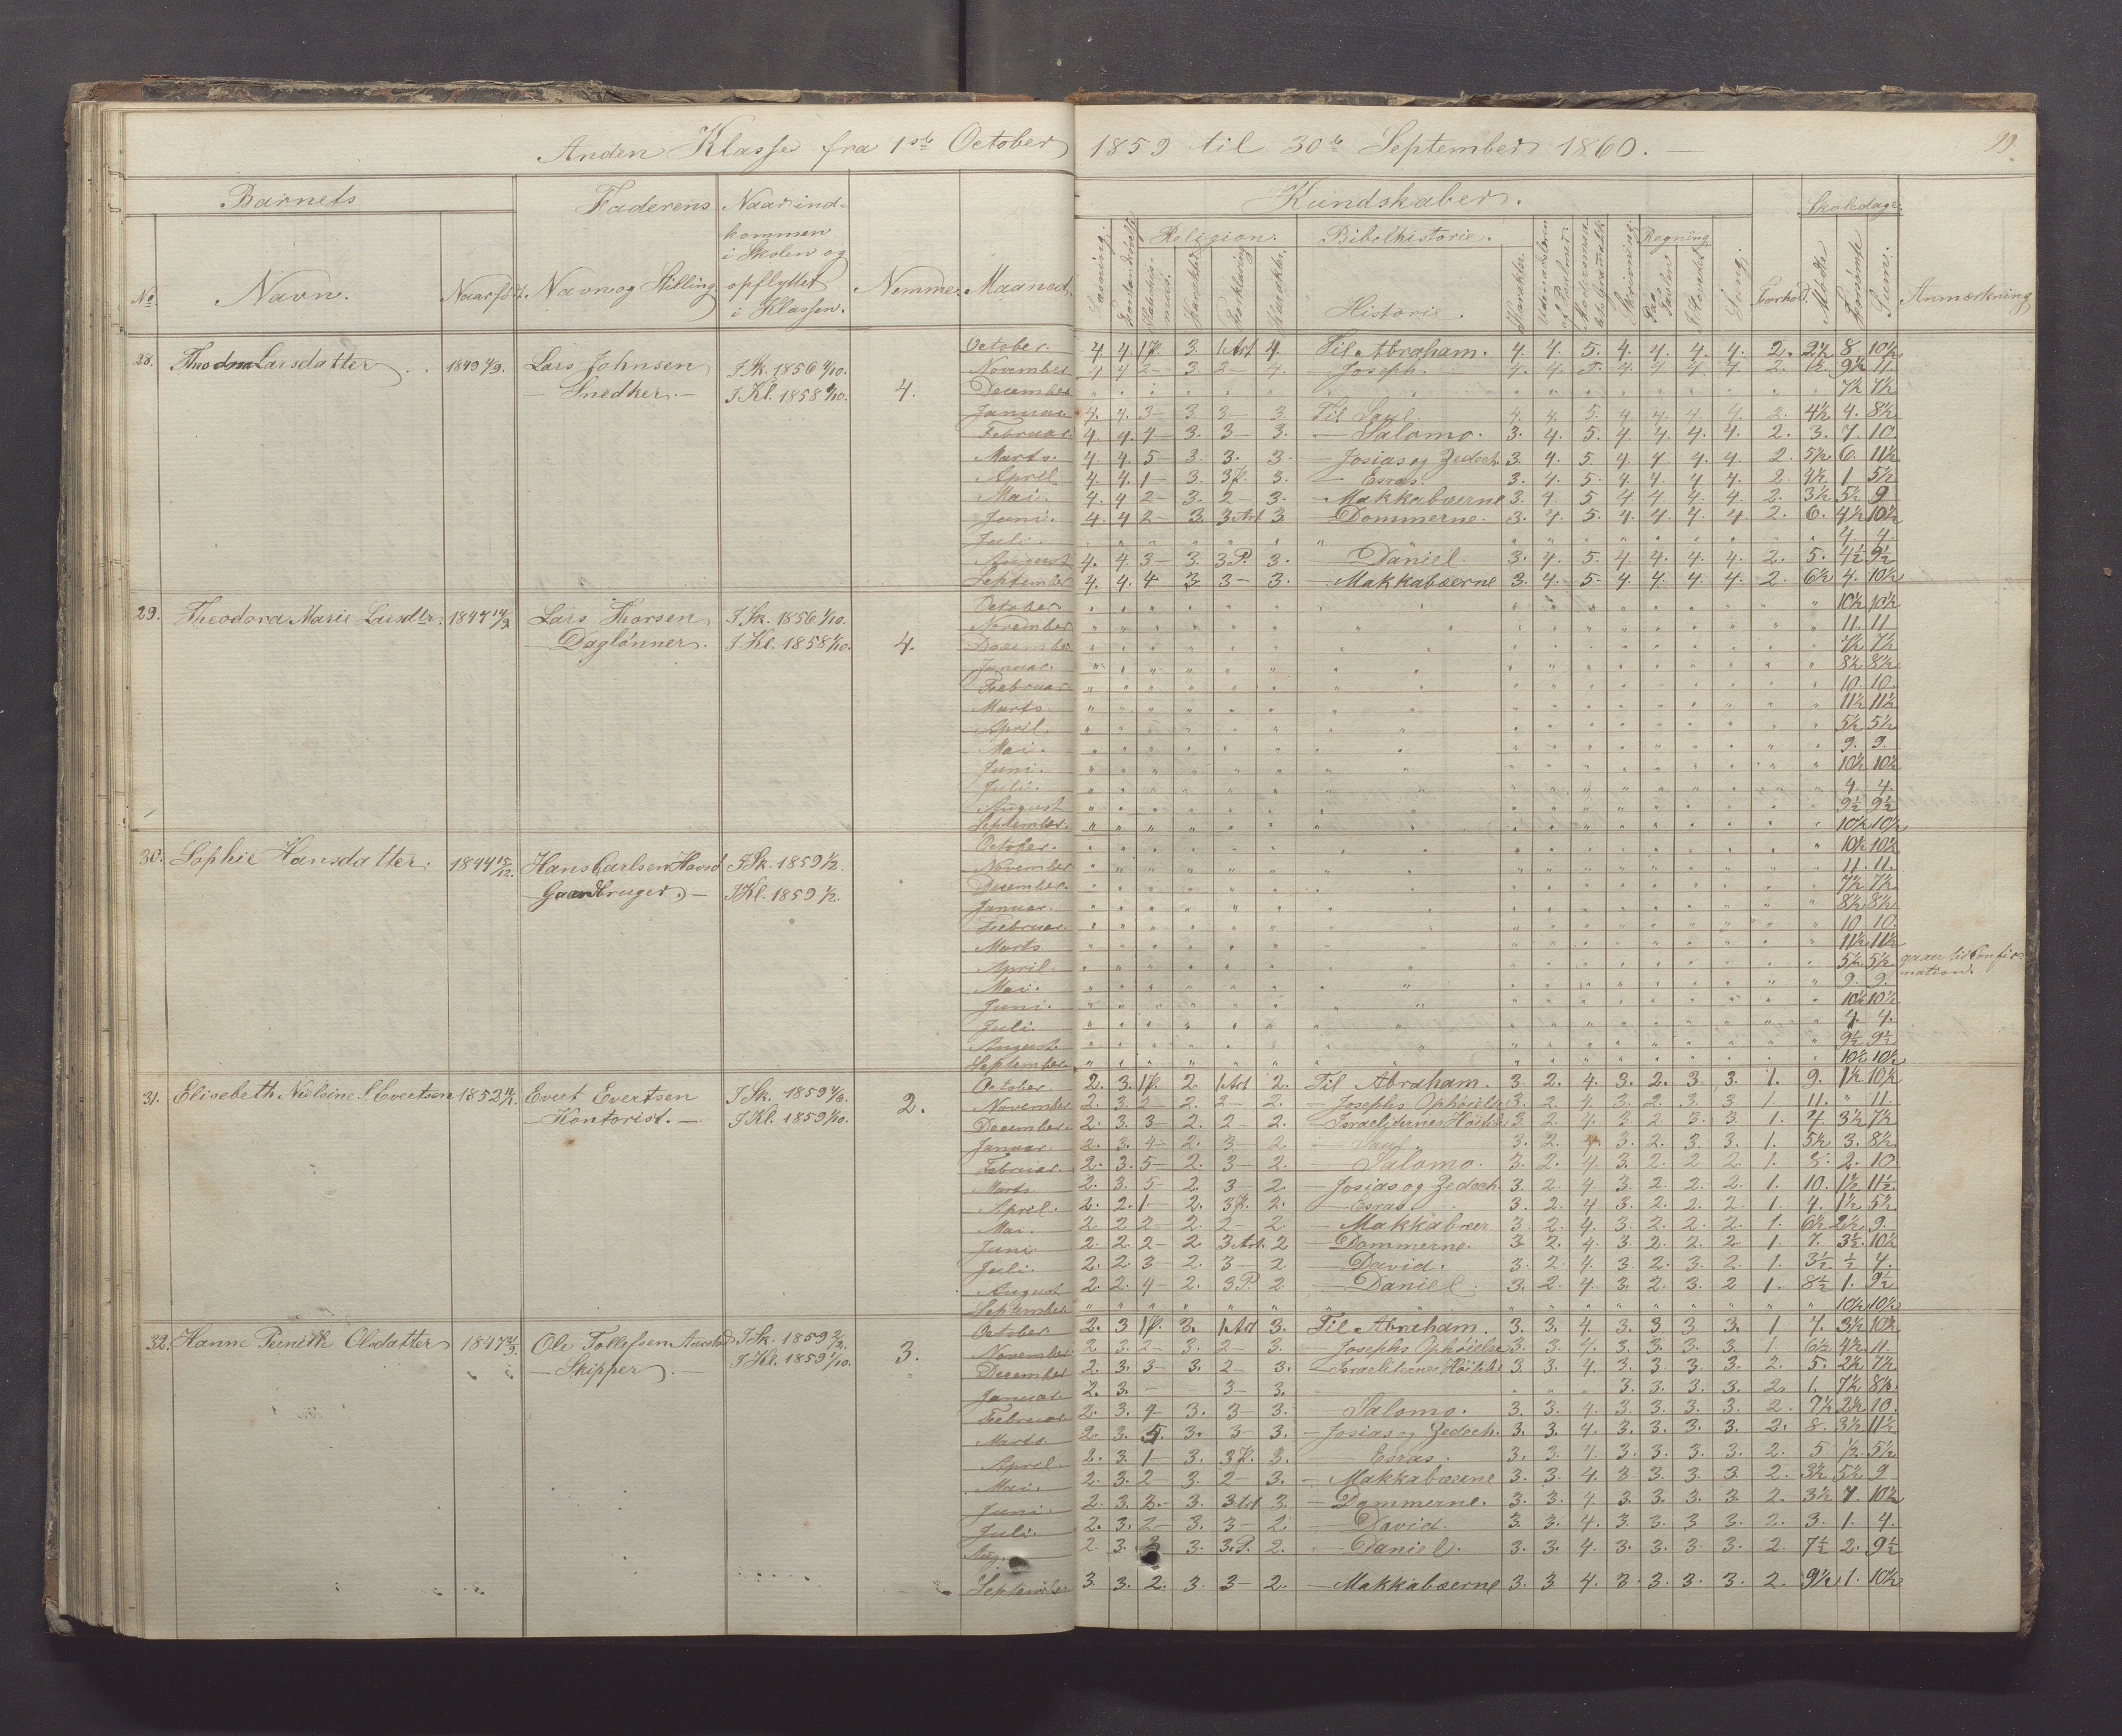 Anden Klasse fra 1ste October 1859 til 30te September 1860.
99.
Barnets
Faderens
Naar ind-
kommen
i Skolen og
opflyttet
i Klassen.
No
Navn.
Naar født.
Navn og Stilling
Nemme.
Maaned.
Kundskaber.
Religion.
Bibelhistorie.
Historie.
Karakter.
Skrivning
Regning
Sang.
Forhold.
Skoledage.
Mødte
Forsømte
Sum.
Anmærkning
28. Theodora Larsdatter 1849 Lars Johnsen I Sk. 1856 1/10.
Snedker. I Kl. 1858 1/10. 4.
October. 4. 4. 1 P. 3. 1 Art 4. Til Abraham. 4. 4. 5. 4. 4. 4. 4. 2. 2½ 8 10½
November 4 4 2 – 3 2 – 4. – Joseph. 4. 4. 5. 4. 4 4 4 2. 1½ 9½ 11.
December " " " " " " " " " " " " " " " 7½ 7½
Januar. 4. 4. 3 – 3 3 – 3. Til Saul. 4. 4. 5. 4. 4. 4. 4. 2. 4½ 4. 8½
Februar. 4. 4. 4 – 3. 3 – 3. – Salomo. 3. 4. 5. 4. 4. 4. 4. 2. 3. 7. 10.
Marts. 4. 4. 5 – 3. 3. 3. – Josias og Zedech. 3. 4. 5. 4. 4. 4. 4. 2. 5½ 6. 11½
April 4. 4. 1 – 3. 3 P. 3. – Esras. 3. 4. 5. 4. 4. 4. 4. 2. 4½ 1 5½
Mai. 4. 4 2 – 3. 2 – 3. – Makkabæerne 3. 4. 5 4 4 4. 4. 2. 3½ 5½ 9
Juni. 4. 4 2 – 3. 3 Art 3. – Dommerne. 3. 4. 5. 4. 4. 4. 4. 2. 6. 4½ 10½
Juli. " " " " " " " " " " " " " " " 4 4.
August 4. 4. 3 – 3. 3 P. 3. Daniel. 3. 4. 5. 4. 4. 4. 4. 2. 5. 4½ 9½
September 4. 4. 4. 3 3 – 3. – Makkabæerne 3. 4. 5. 4. 4. 4. 4. 2. 6½ 4. 10½
29. Theodora Marie Larsdtr. 1847 Lars Thorsen I Sk. 1856 1/10.
Daglønner. I Kl. 1858 1/10. 4.
October. 10½ 10½
November 11. 11
December 7½ 7½
Januar. 8½ 8½
Februar 10. 10.
Marts 11½ 11½
April. 5½ 5½
Mai. 9. 9.
Juni. 10½ 10½
Juli. 4. 4.
August 9½ 9½
September. 10½ 10½
30. Sophie Hansdatter. 1844 15/12. Hans Carlsen I Sk. 1859 1/2.
Gaardbruger. – I Kl. 1859 1/2.
October. 10½ 10½
November 11. 11.
December. 7½ 7½
Januar. 8½ 8½
Februar. 10 10.
Marts 11½ 11½
April. 5½ 5½ gaaer til Confir-
mation.
Mai. 9. 9.
Juni. 10½ 10½
Juli. 4. 4.
August. 9½ 9½
September. 10½ 10½
31. Elisebeth Nielsine S. Evertsen 1852 Evert Evertsen I Sk. 1859
Kontorist. – I Kl. 1859 1/10. 2.
October. 2. 3. 1 P. 2. 1 Art 2. Til Abraham. 3. 2. 4. 3. 2. 3. 3. 1. 9. 1½ 10½
November 2. 3. 2 – 2. 2 – 2. – Josephs Ophøielse 3. 2 4. 3. 2. 3. 3 1. 11. " 11.
December. 2. 3. 3 – 2. 2 – 2. – Israeliternes Høitider 3. 2 4. 3. 2 3. 3. 1. 4. 3½ 7½
Januar. 2. 3. 4 – 2. 3 – 2. – Saul. 3. 2. 4 3. 2. 3. 3. 1. 5½ 3. 8½
Februar. 2. 3. 5 – 2. 3 – 2. – Salomo. 3. 2. 4. 3. 2. 2 2. 1. 8. 2. 10
Marts 2. 3. 5 – 2. 3 – 2. – Josias og Zedech. 3. 2. 4. 3. 2. 2. 2. 1. 10. 1½ 11½
April. 2. 2. 1 – 2. 3 P. 2. – Esras. 3. 2. 4 3. 2. 2. 2. 1. 4. 1½ 5½
Mai. 2 2 2 – 2. 2 – 2 – Makkabæer 3. 2. 4. 3. 2. 2. 2. 1. 6½ 2½ 9.
Juni 2. 2. 2 – 2. 3 Art. 2 – Dommerne. 3. 2. 4. 3. 2. 2. 2. 1. 7. 3½ 10½
Juli. 2. 2. 3 – 2. 3 – 2. – David. 3. 2 4. 3. 2. 3. 2. 1. 3½ ½ 4.
August 2. 2. 4 – 2. 3 P. 2 – Daniel. 3. 2. 4. 3. 2. 3. 2 1. 8½ 1. 9½
September " " " " " " " " " " " " " " " 10½ 10½
32. Hanne Olsdatter 1847 Ole Tollefsen I Sk. 1859
– Skipper. – I Kl. 1859 1/10. 3.
October 2. 3 1 P. 3. 1 Art 3. Til Abraham. 3. 3. 4. 3. 3 3. 3. 1 7. 3½ 10½
November 2 3. 2 – 3. 2 – 3. – Josephs Ophøielse 3. 3. 4. 3. 3. 3. 3. 1. 6½ 4½ 11.
December 2. 3. 3 – 3. 2 – 3. – Israeliternes Høitider 3. 3. 4. 3. 3. 3. 3. 2. 5. 2½ 7½
Januar 2. 3. – 3 – 3. " " " 3. 3. 3. 3. 2. 1. 7½ 8½.
Februar 2. 3. 4 – 3. 3 – 3. Salomo. 3. 3. 4. 3. 3. 3. 3. 2. 7½ 2½ 10.
Marts. 2. 3. 5. 3. 3 – 3. – Josias og Zedech. 3. 3. 4. 3. 3. 3. 3. 2. 8. 3½ 11½
April. 2. 3. 1 – 3. 3 P. 3. – Esras. 3. 3. 4. 3. 3. 3. 3. 2. 5 ½. 5½
Mai. 2. 3. 2 – 3. 2 – 3. – Makkabæerne 3. 3. 4. 3 3. 3. 3. 2. 3½ 5½ 9
Juni 2. 3. 2. – 3. 3 Art 3. – Dommerne. 3. 3. 4. 3. 3. 3. 3. 2. 3½ 7. 10½
Juli. 2. 3. 2 – 3. 3 – 2. – David. 3. 3. 4. 3. 3. 3. 3. 2. 3. 1. 4.
Aug. 2. 3. 3. 3. P. 2. – Daniel. 3. 3. 4. 3. 3. 3. 3. 2. 7½ 2. 9½
September 3. 3. 2. 3. 3 – 2. – Makkabæerne 3. 3. 4. 3. 3. 3. 3. 2. 9½ 1. 10½